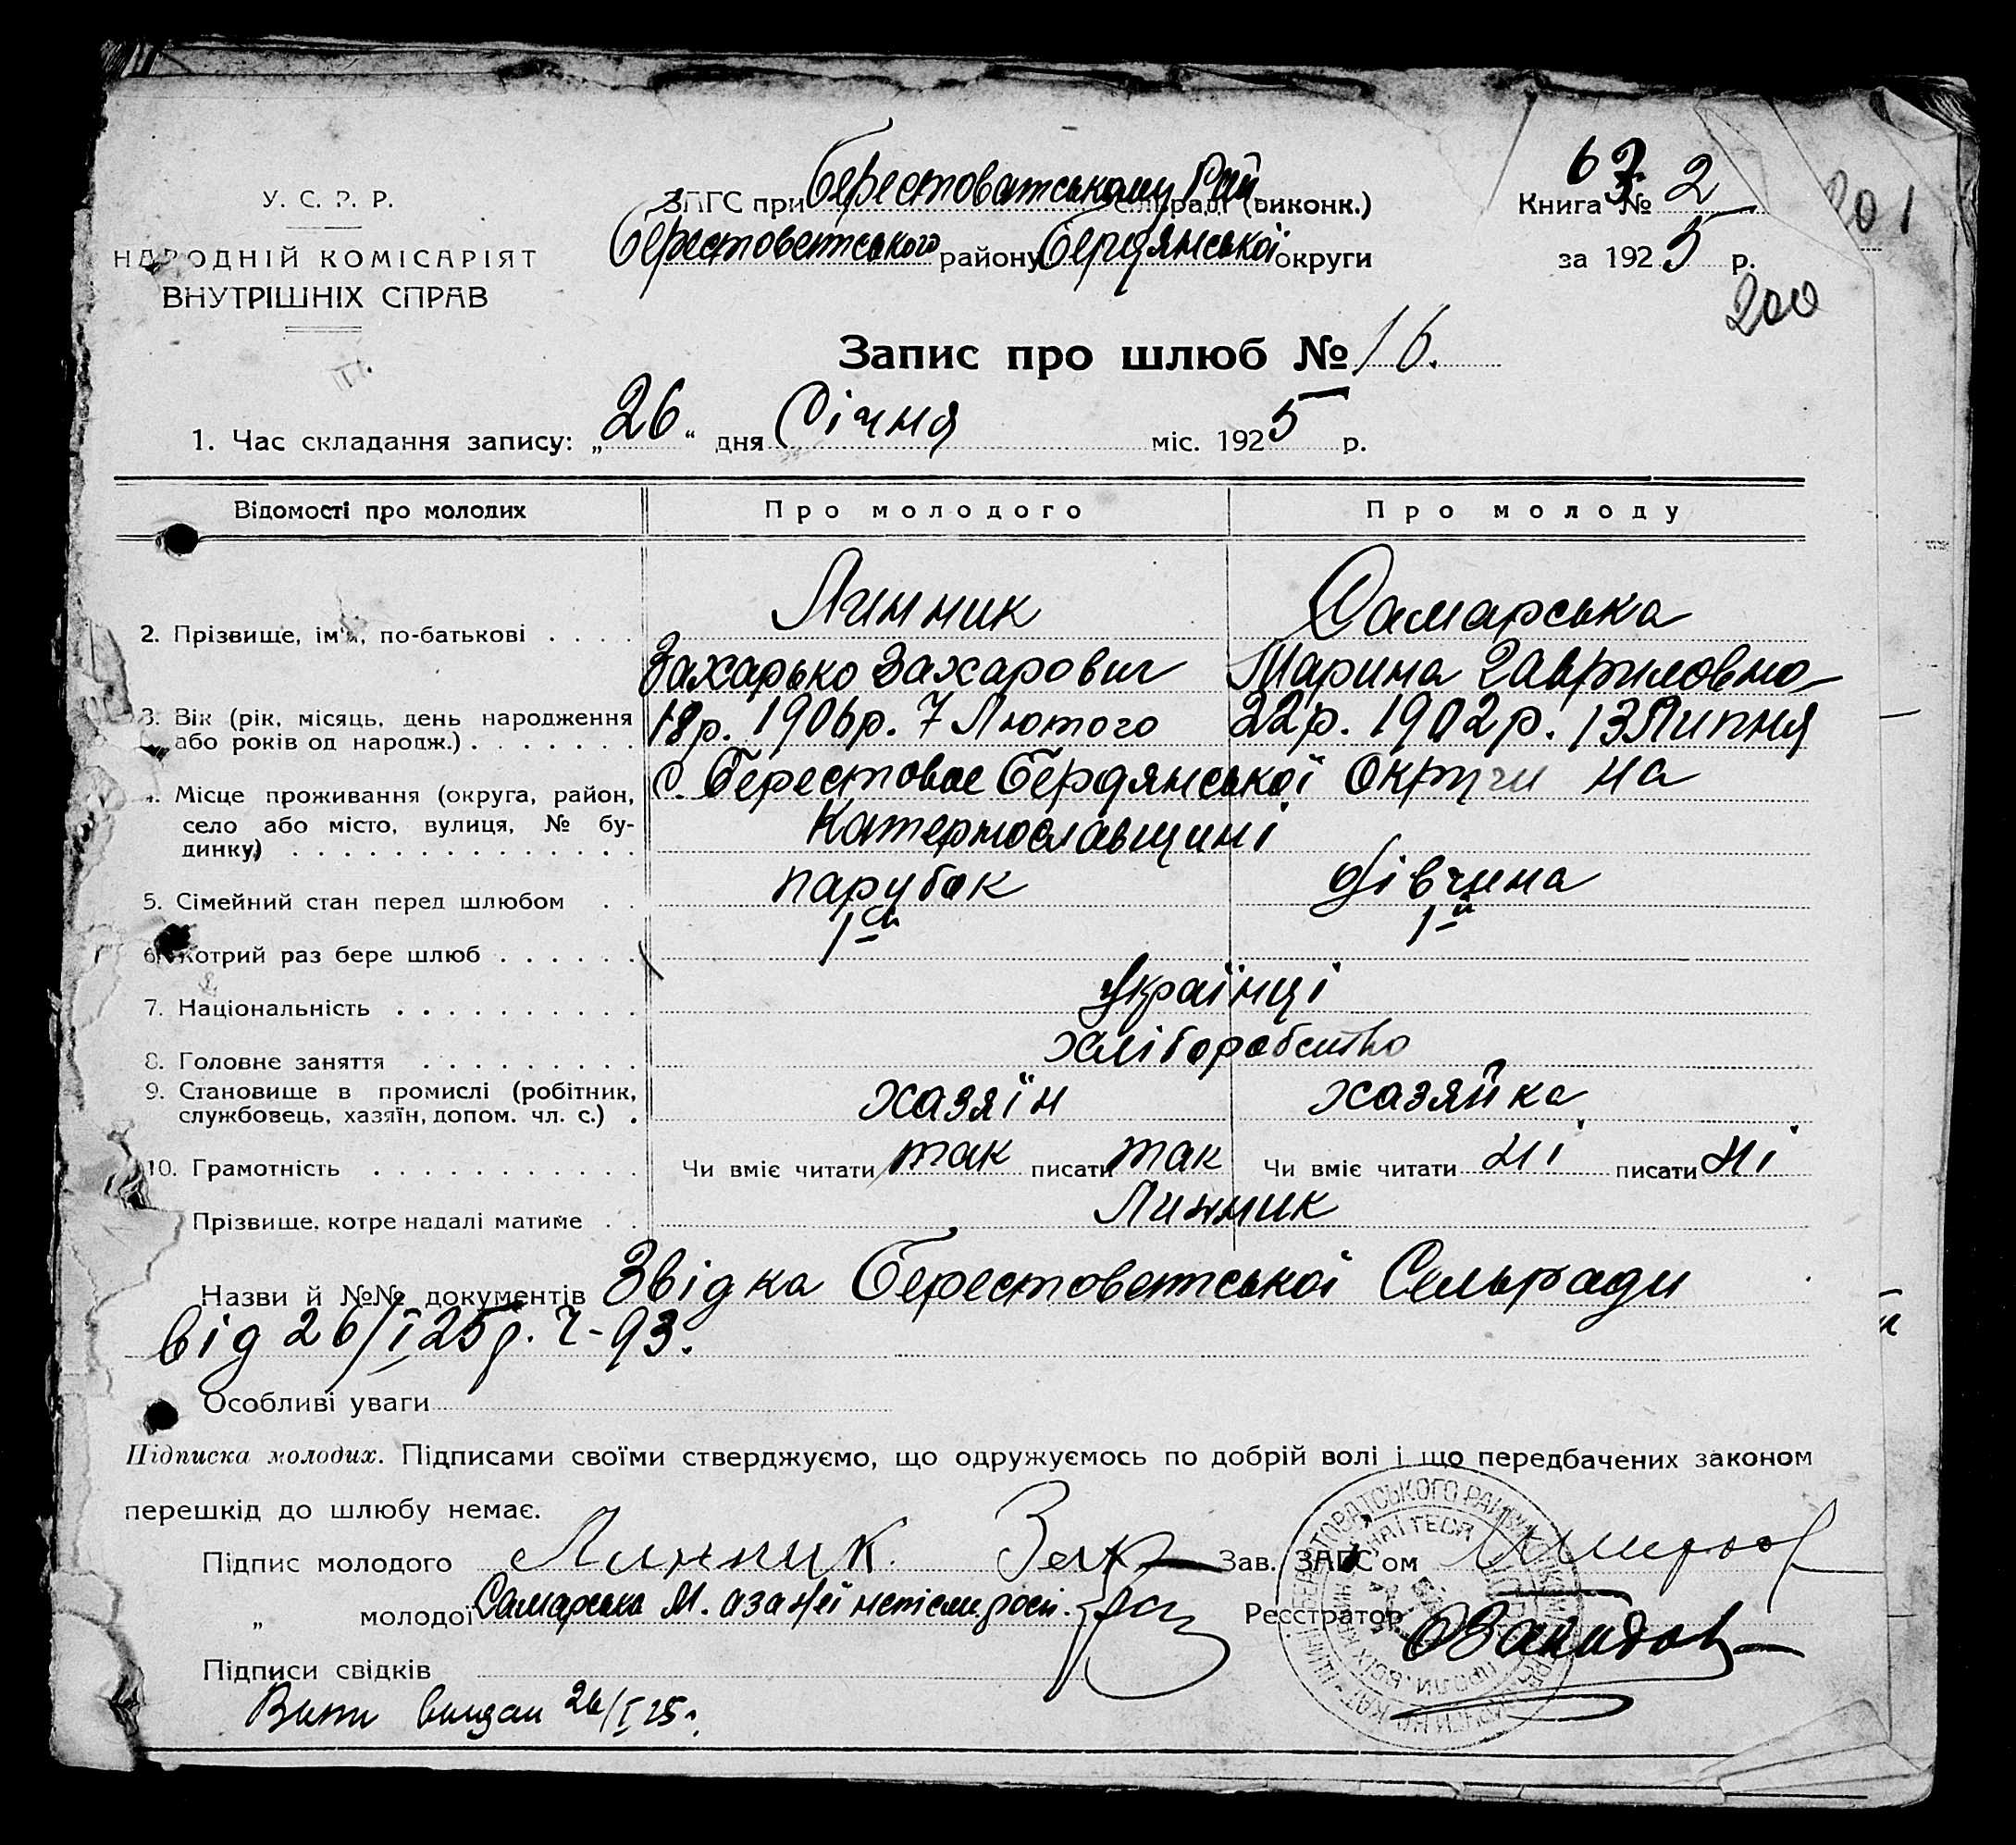 У. С. Р. Р.
НАРОДНІЙ КОМІСАРІЯТ
ВНУТРІШНІХ СПРАВ
ЗАГС при Берестоватському Рай сільраді (виконк.)
Берестоветського району Бердянської округи
67.
Книга № 2
за 1925 р.
201
200
Запис про шлюб № 16.
1. Час складання запису: „26“ дня Січня міс. 1925 р.
Відомості про молодих Про молодого Про молоду
Линник Самарська
2. Прізвище, ім'я, по-батькові . . . . Захарько Захарович Марина Гавриловна
3. Вік (рік, місяць, день народження або років од народж.) . . . . . . . 18р. 1906р. 7 Лютого 22р. 1902р. 13 Липня
4. Місце проживання (округа, район, с. Берестовое Бердянської Округи на
село або місто, вулиця, № бу- Катеринославщині
динку) . . . . . . . . . . . . . .
5. Сімейний стан перед шлюбом . . парубок дівчина
6. Котрий раз бере шлюб . . . . . . 1ий 1й
7. Національність . . . . . . . . . . Українці
8. Головне заняття . . . . . . . . . Хліборобство
9. Становище в промислі (робітник,
службовець, хазяїн, допом. чл. с.) . хазяїн хазяйка
10. Грамотність . . . . . . . . . . . Чи вміє читати так писати так Чи вміє читати ні писати ні
Прізвище, котре надалі матиме . . Линник
Назви й №№ документів Звідка Берестоветської Сельради
від 26/I 25р. Ч-93.
Особливі уваги
Підписка молодих. Підписами своїми стверджуємо, що одружуємось по добрій волі і що передбачених законом
перешкід до шлюбу немає.
Підпис молодого Линник. Зах Зав. ЗАГС'ом
„ молодої Самарська М. а за неї неписьм. росп. Реєстратор
Підписи свідків
Витяг видан 26/I 25р.